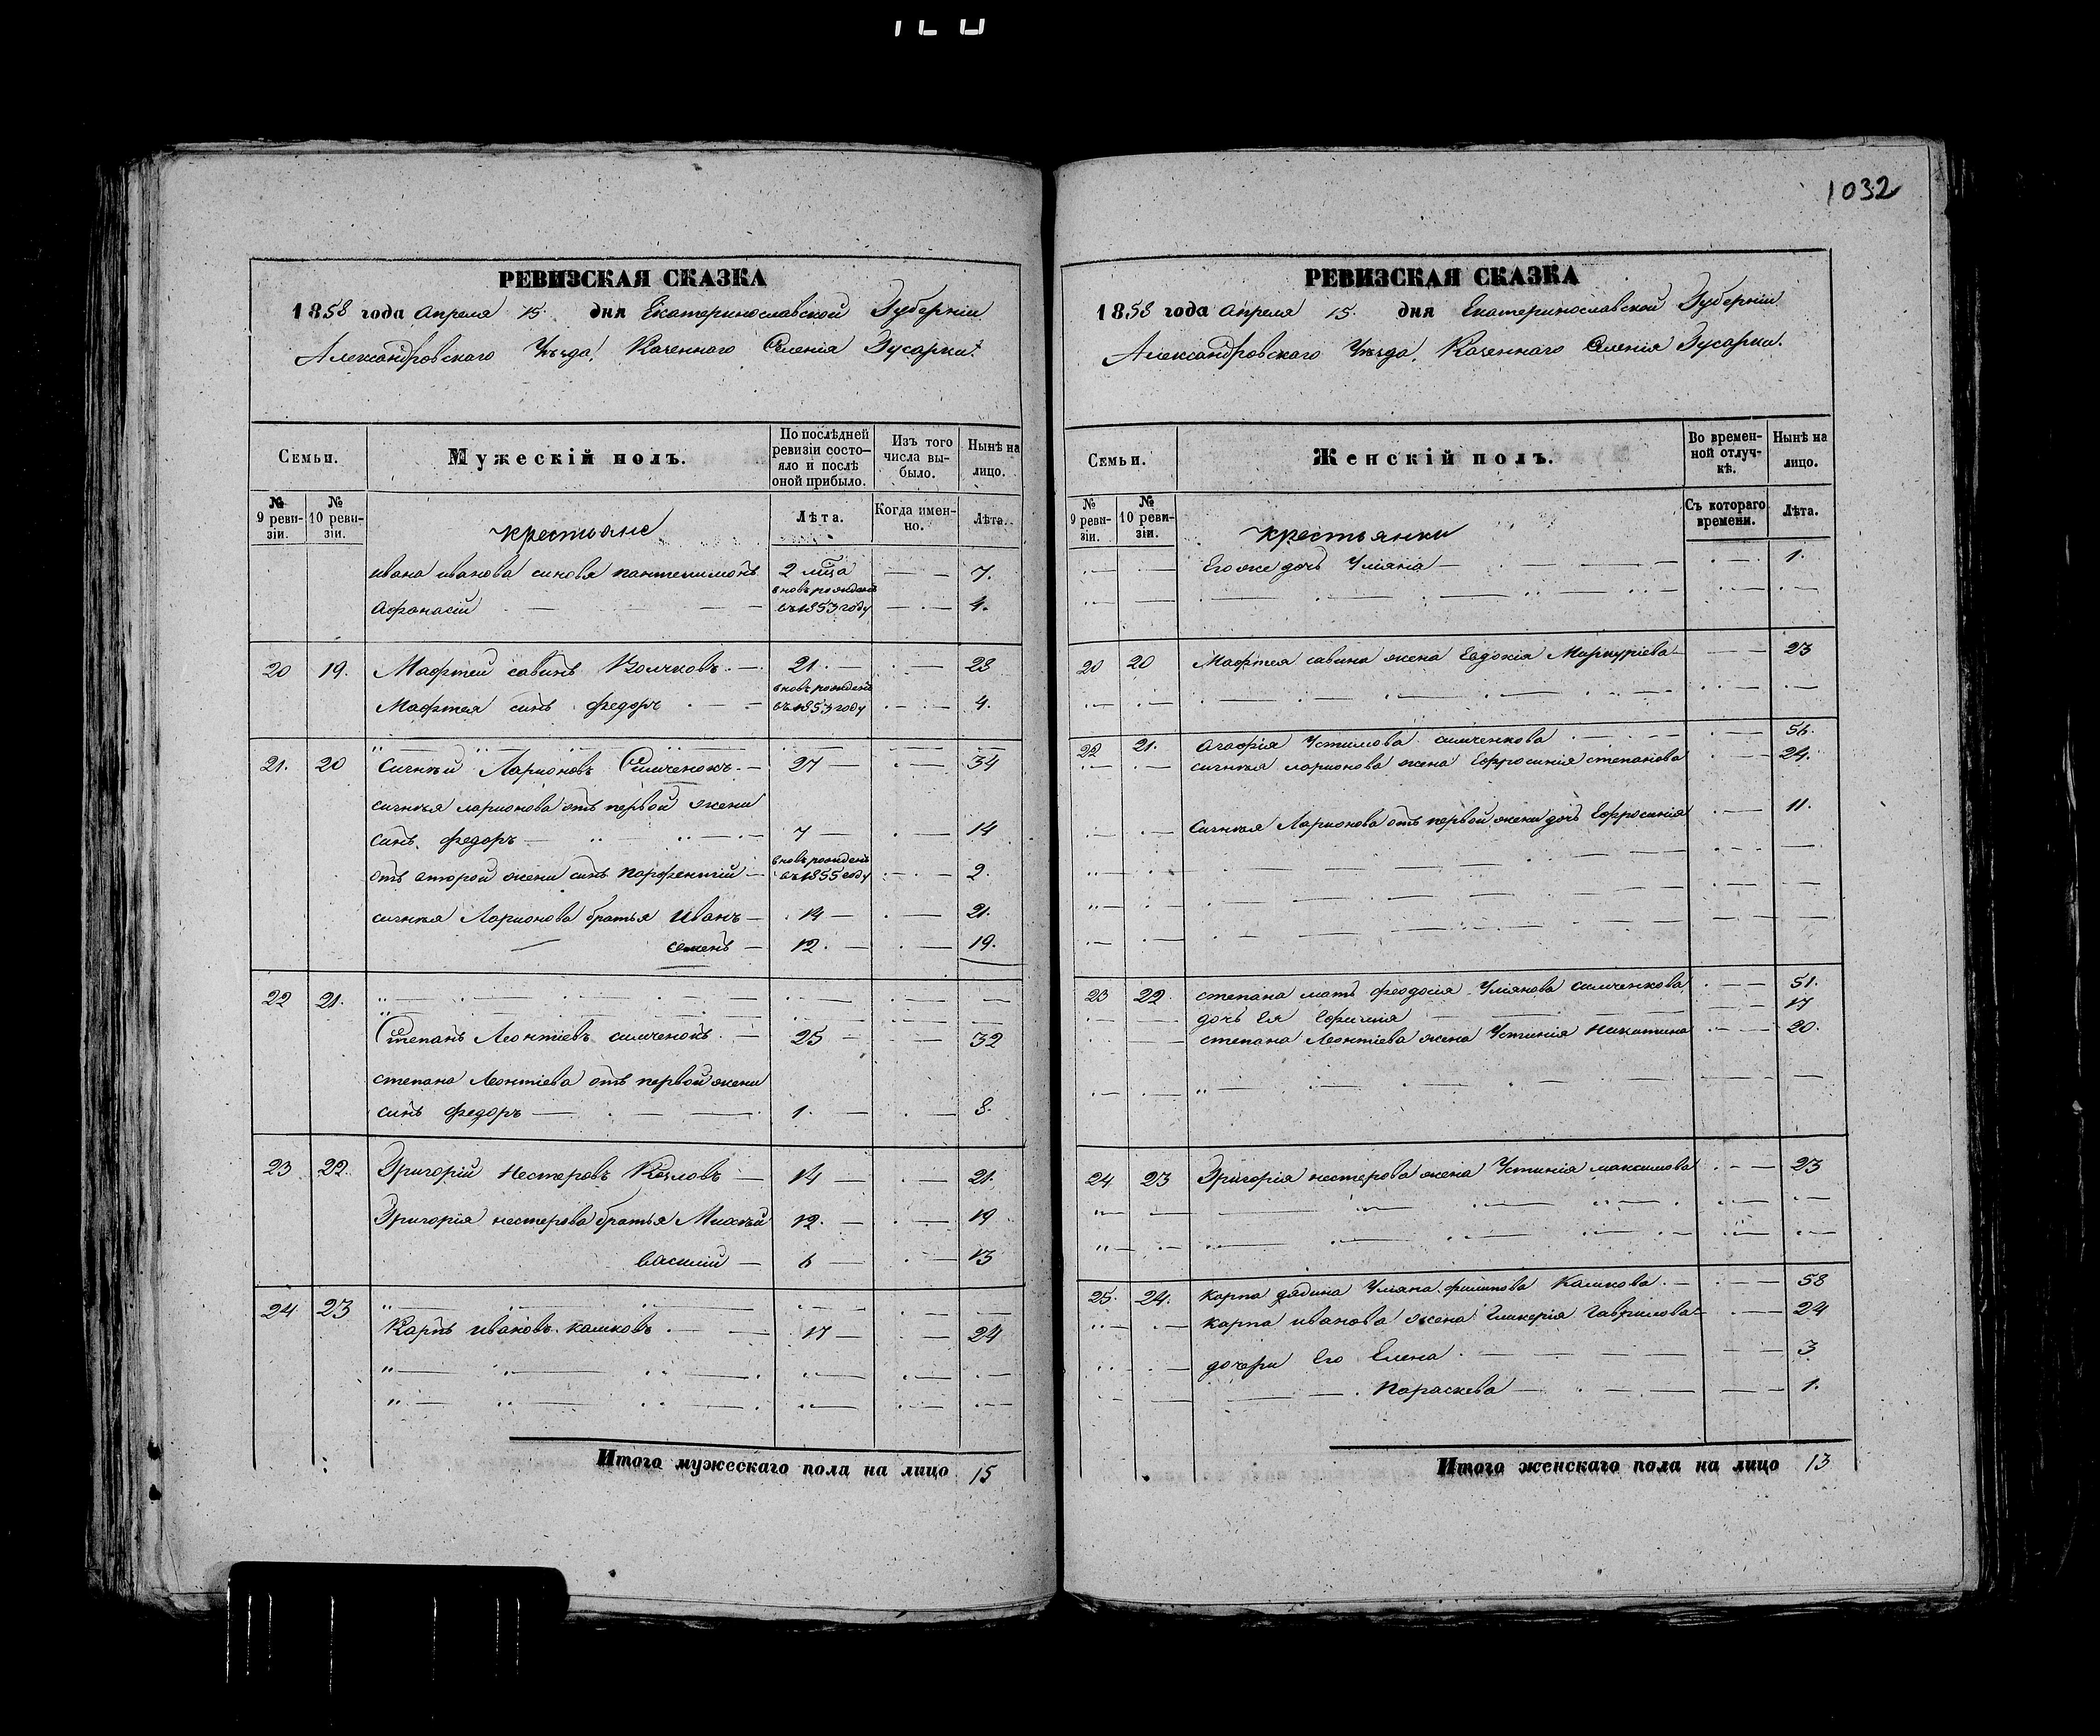 1032
РЕВИЗСКАЯ СКАЗКА
1858 года Апреля 15. дня Екатеринославской Губерніи
Александровскаго Уѣзда, Казеннаго Селенія Гусарки.
Семьи.
Мужескій полъ.
По послѣдней ревизіи состо-яло и послѣ оной прибыло.
Изъ того числа вы-было.
Нынѣ на лицо.
№ 9 реви-зіи.
№ 10 реви-зіи.
крестьяне
Лѣта.
Когда имен-но.
Лѣта.
ивана иванова синовя пантелимонъ 2 мца 7.
Афонасій вновь рожденъ въ 1853 году 4.
20 19. Мафтей савинъ 21. 28
Мафтея синъ федоръ вновь рожденъ въ 1853 году 4.
21. 20 Сичнѣй Ларионовъ Симченокъ 27 34
сичнѣя ларионова отъ первой жени
синъ федоръ 7 14
отъ второй жени синъ Парфентій вновь рожденъ въ 1855 году 2.
сичнѣя Ларионова братья иванъ 14 21.
семенъ 12. 19.
22 21.
Степанъ Леонтіевъ симченокъ 25 32
степана Леонтіева отъ первой жени
синъ федоръ 1. 8.
23 22. Григорій Нестеровъ Козловъ 14 21.
Григорія нестерова братья Михѣй 12. 19
василій 6 13
24 23
Карпъ ивановъ калковъ 17 24
Итого мужескаго пола на лицо 15
РЕВИЗСКАЯ СКАЗКА
1858 года Апреля 15. дня Екатеринославской Губерніи
Александровскаго Уѣзда, Казеннаго Селенія Гусарки.
Семьи.
Женскій полъ.
Во времен-ной отлуч-кѣ.
Нынѣ на лицо.
№ 9 реви-зіи.
№ 10 реви-зіи.
крестьянки
Съ котораго времени.
Лѣта.
Его же дочь Уліяна 1.
20 20 Мафтея савина жена Евдокія Меркуріева 23
22 21. Агафія Устимова симченкова 56.
сичнѣя ларионова жена Ефросинія степанова 24.
Сичнѣя Ларионова отъ первой жени дочь Ефросинія 11.
23 22. степана мать феодосія Уліянова симченкова 51.
дочь Ея Ефимія 17
степана Леонтіева жена Устинія Никитина 20.
24 23 Григорія нестерова жена Устинія максимова 23
25. 24. Карпа дядина Уляна филипова Калкова 58
карпа иванова жена Гликерія Гаврилова 24
дочери Его Елена 3
Пораскева 1.
Итого женскаго пола на лицо 13